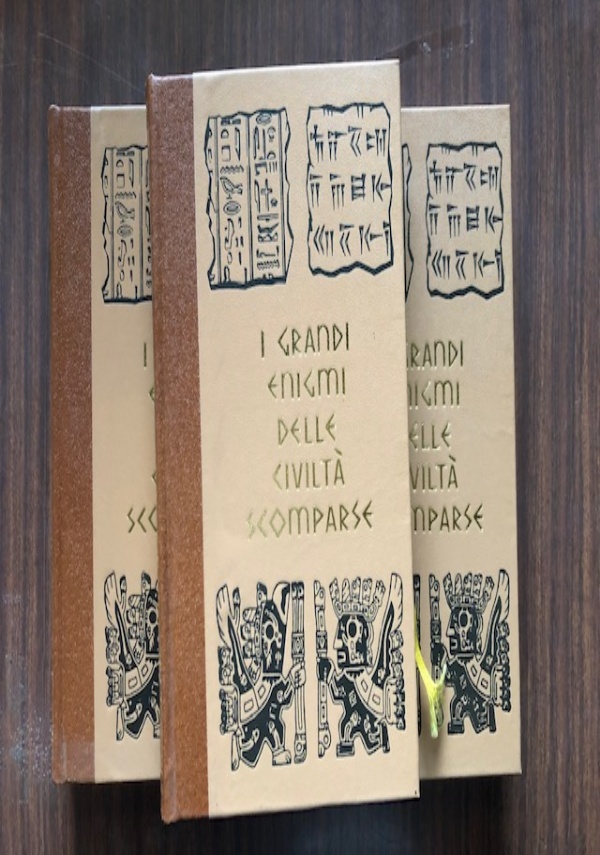 I GRANDI
ENIGMI
DELLE
CIVILTÀ
SCOMPARSE
I
SCO
RANDI
NIGMI
ELLE
VILTÀ
MPARSE